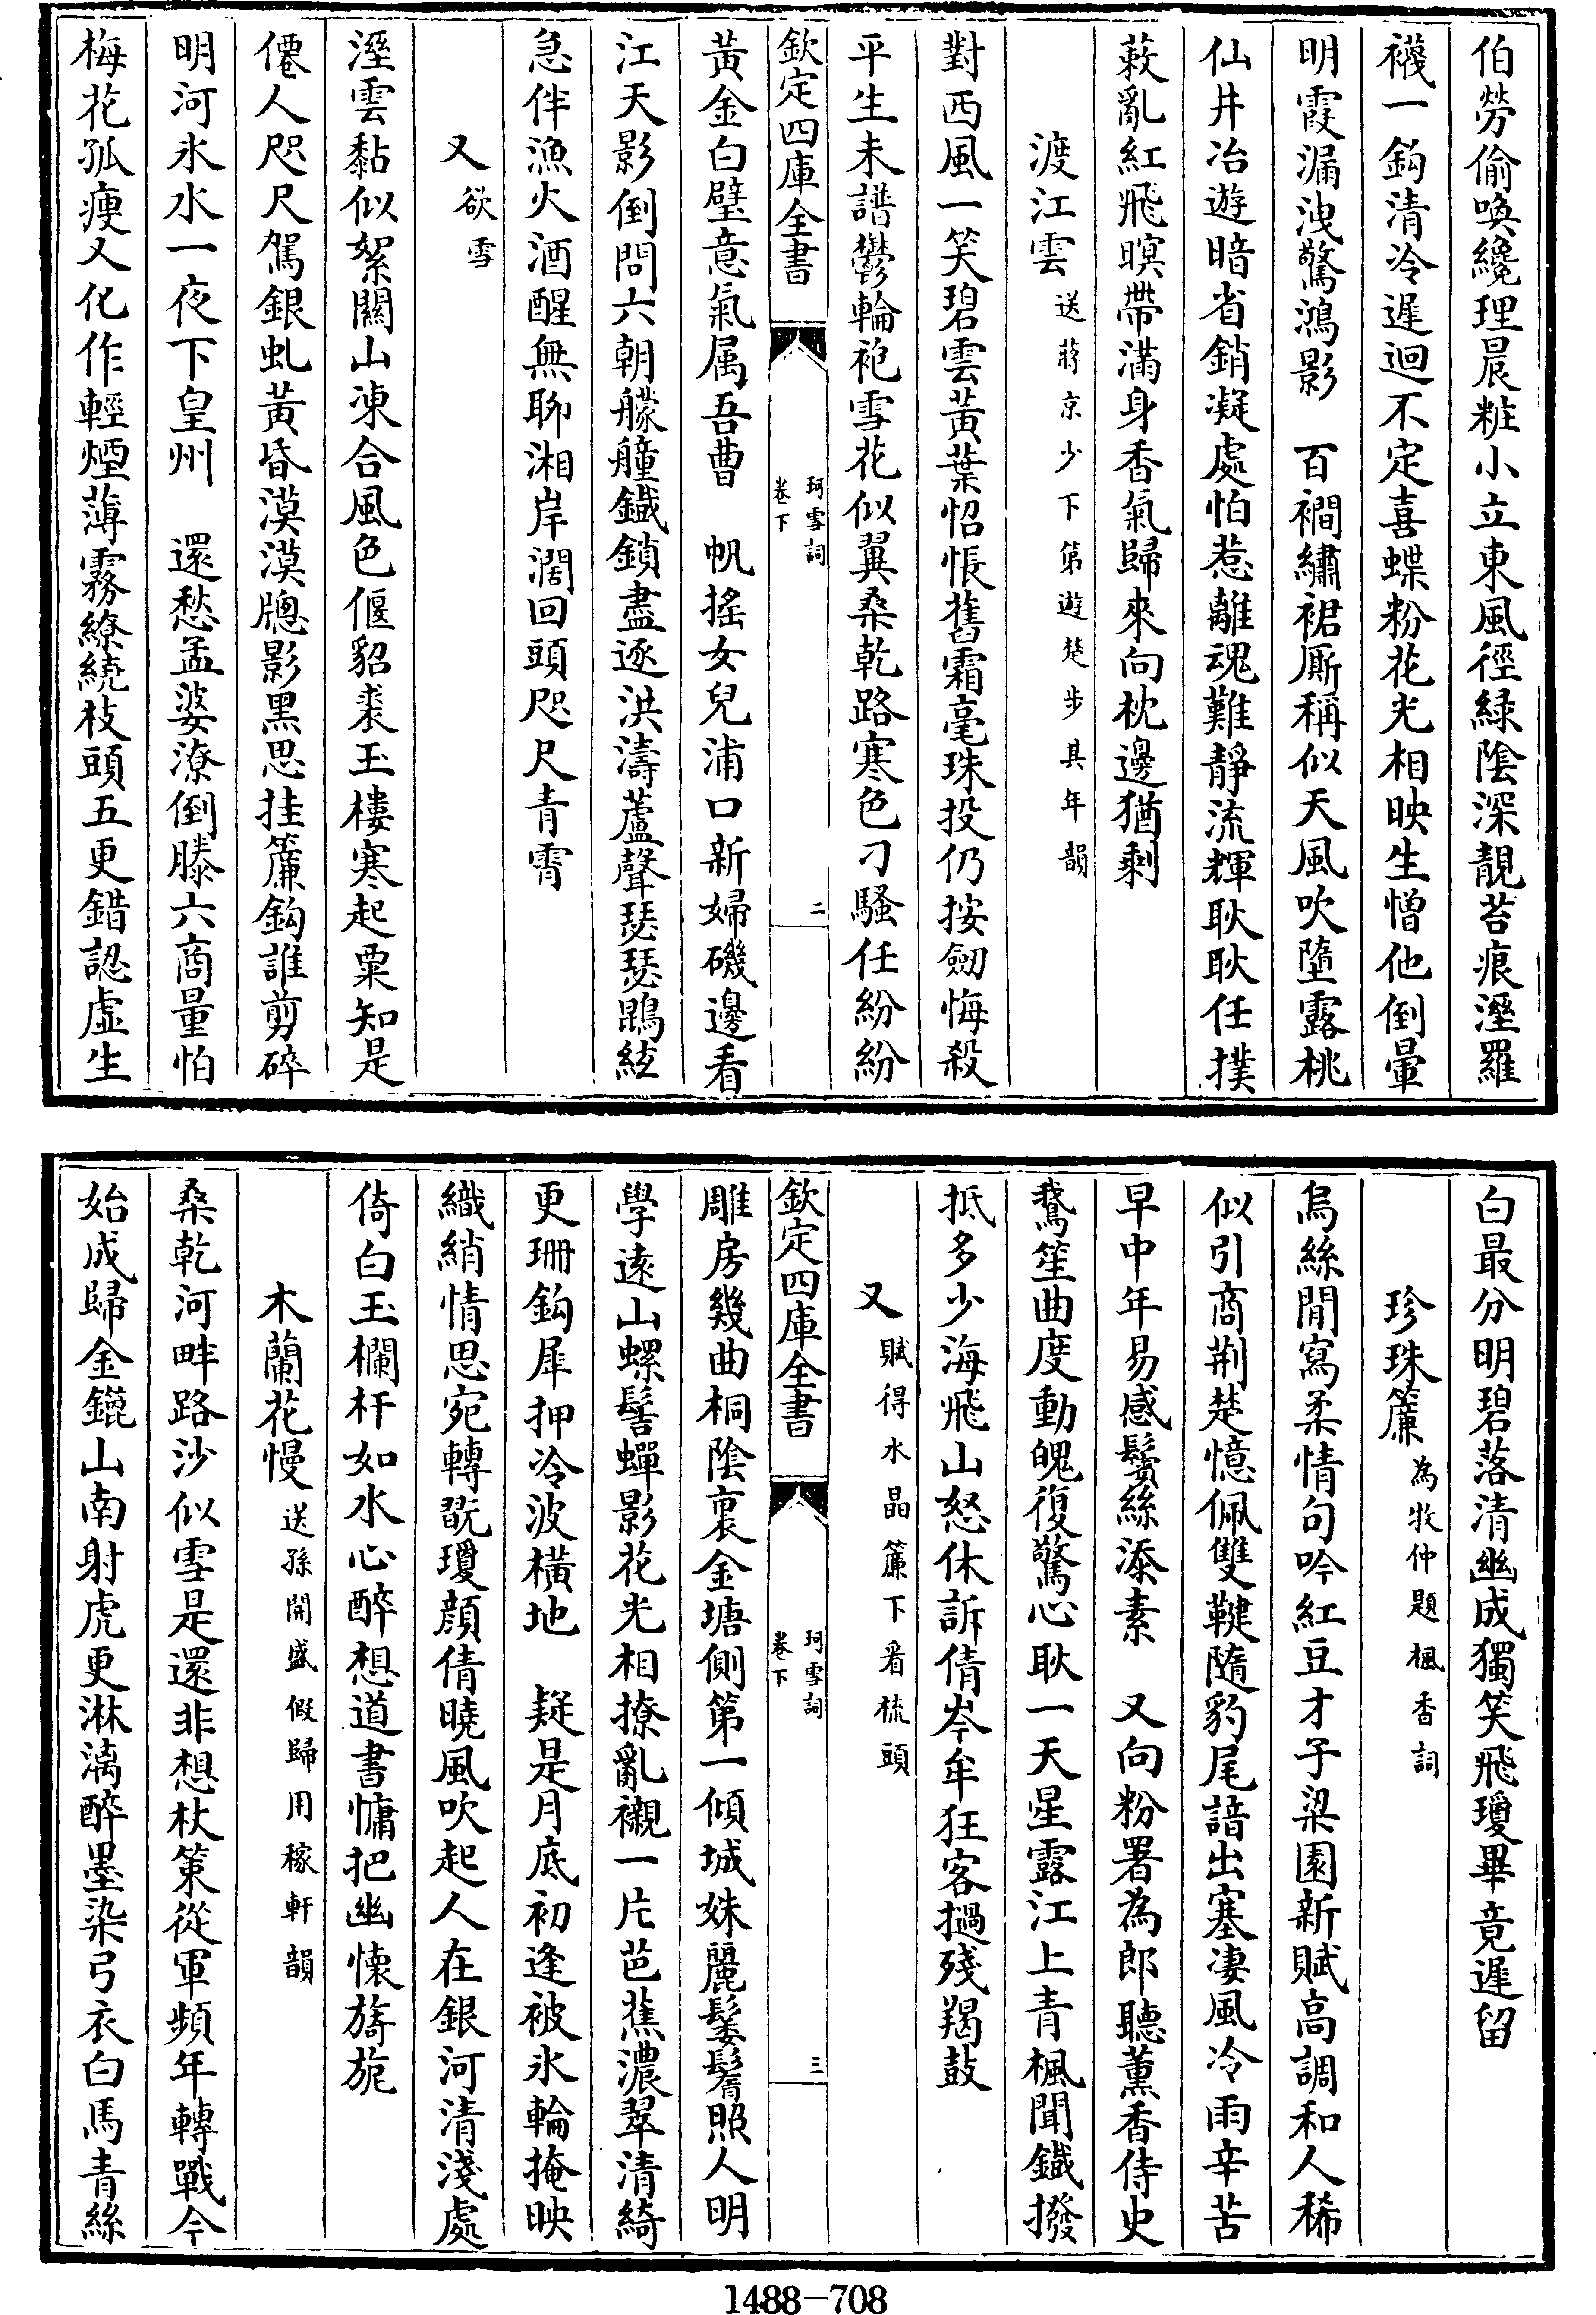 伯勞偷喚纔理晨粧小立東風徑緑陰深靚苔痕溼羅
襪一鈎清冷遲迴不定喜蝶粉花光相映生憎他倒暈
明霞漏洩驚鴻影　百襇繡裙厮稱似天風吹墮露桃
仙井冶遊暗省銷凝處怕惹離魂難靜流輝耿耿任撲
蔌亂紅飛暝帶滿身香氣歸來向枕邊猶剩
渡江雲送蔣京少下第遊楚步其年韻
對西風一笑碧雲黃葉怊悵舊霜毫珠投仍按劒悔殺
平生未譜鬱輪袍雪花似翼桑乾路寒色刁騷任紛紛
欽定四庫全書
珂雪詞
卷下
二
黃金白璧意氣属吾曹　帆搖女兒浦口新婦磯邊看
江天影倒問六朝艨艟鐵鎖盡逐洪濤蘆聲瑟瑟鵾絃
急伴漁火酒醒無聊湘岸濶回頭咫尺青霄
又欲雪
溼雲黏似絮關山凍合風色偃貂裘玉樓寒起粟知是
僊人咫尺駕銀虬黃昏漠漠牕影黑思挂簾鈎誰剪碎
明河氷水一夜下皇州　還愁孟婆潦倒滕六商量怕
梅花孤瘦又化作輕煙薄霧繚繞枝頭五更錯認虛生
白最分明碧落清幽成獨笑飛瓊畢竟遲留
珍珠簾為牧仲題楓香詞
烏絲閒寫柔情句吟紅豆才子梁園新賦高調和人稀
似引商荆楚憶佩雙鞬隨豹尾諳出塞凄風冷雨辛苦
早中年易感鬢絲添素　又向粉署為郎聽薰香侍史
鵞笙曲度動魄復驚心耿一天星露江上青楓聞鐵撥
抵多少海飛山怒休訴倩岑牟狂客撾殘羯鼓
又賦得水晶簾下看梳頭
欽定四庫全書
珂雪詞
卷下
三
雕房幾曲桐陰裏金塘側第一傾城姝麗鬖鬌照人明
學遠山螺髻蟬影花光相撩亂襯一片芭蕉濃翠清綺
更珊鈎犀押冷波橫地　疑是月底初逢被氷輪掩映
織綃情思宛轉翫瓊顔倩曉風吹起人在銀河清淺處
倚白玉欄杆如水心醉想道書慵把幽懷旖旎
木蘭花慢送孫開盛假歸用稼軒韻
桑乾河畔路沙似雪是還非想杖策從軍頻年轉戰今
始成歸金鑣山南射虎更淋漓醉墨染弓衣白馬青絲
1488-708